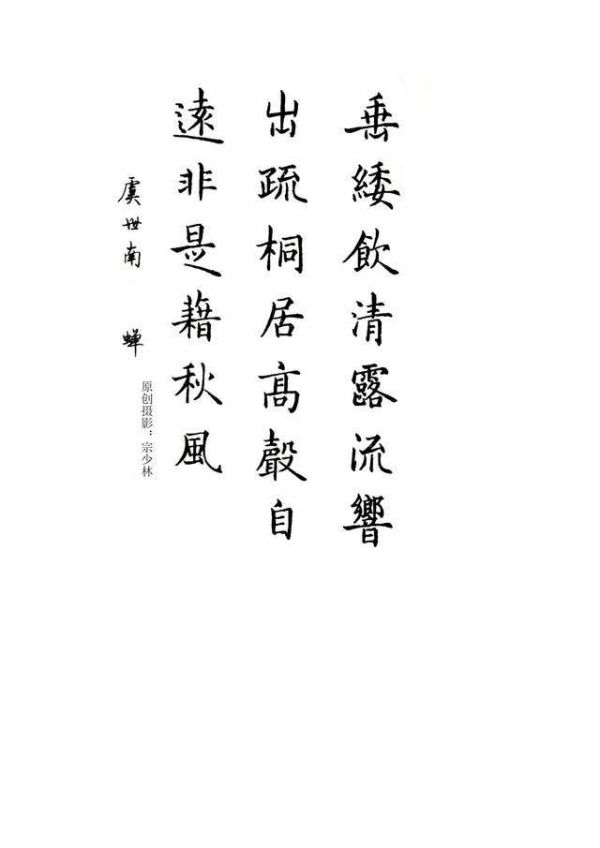 垂緌飲清露流響
出疏桐居高聲自
遠非是藉秋風
虞世南 蟬
原创摄影：宗少林